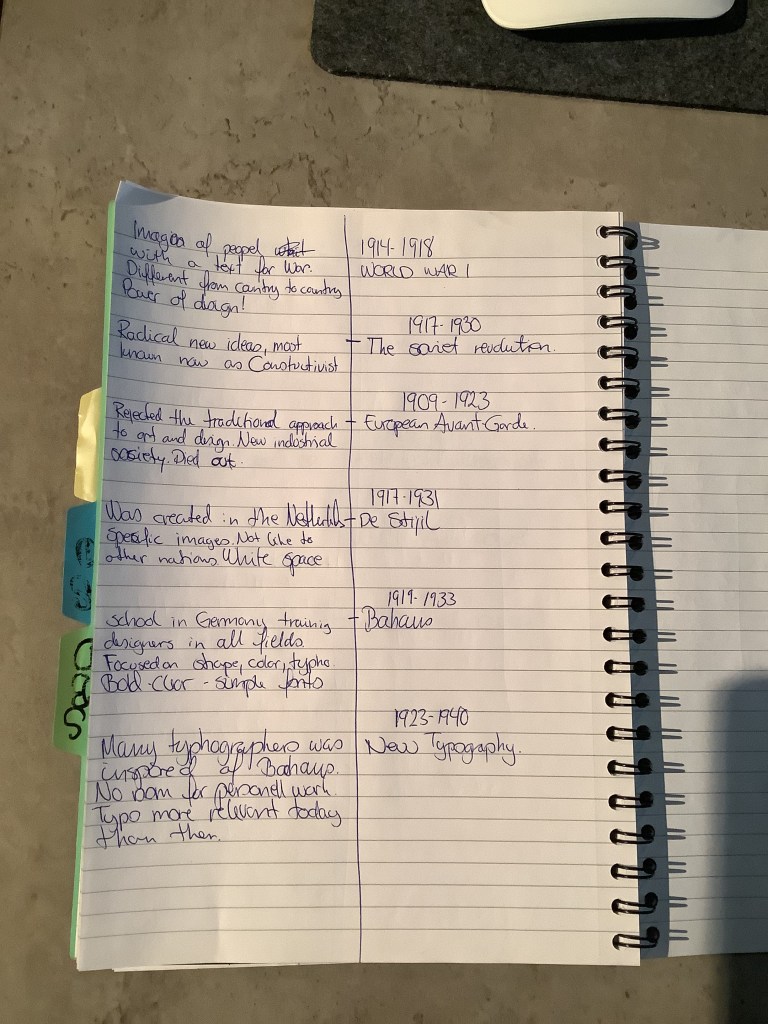 Images of peopel
with a text for War.
Different from cantry to country
Power of design!
1914-1918
WORLD WAR I
Radical new ideas, most
known now as Constuctivist
1917-1930
The soviet revolution.
Rejected the traditional approach
to art and design. New industrial
society. Died out.
1909-1923
European Avant-Garde.
Was created in the
Specific images. Not like to
other nations. White space
1917-1931
De Stijl
school in Germany training
designers in all fields.
Focused on shape, color, typho.
Bold - clear - simple fonts
1919-1933
Bahaus
Many typhographers was
inspored of Bahaus.
No room for personell work.
Typo more relevant today
than then.
1923-1940
New Typography.